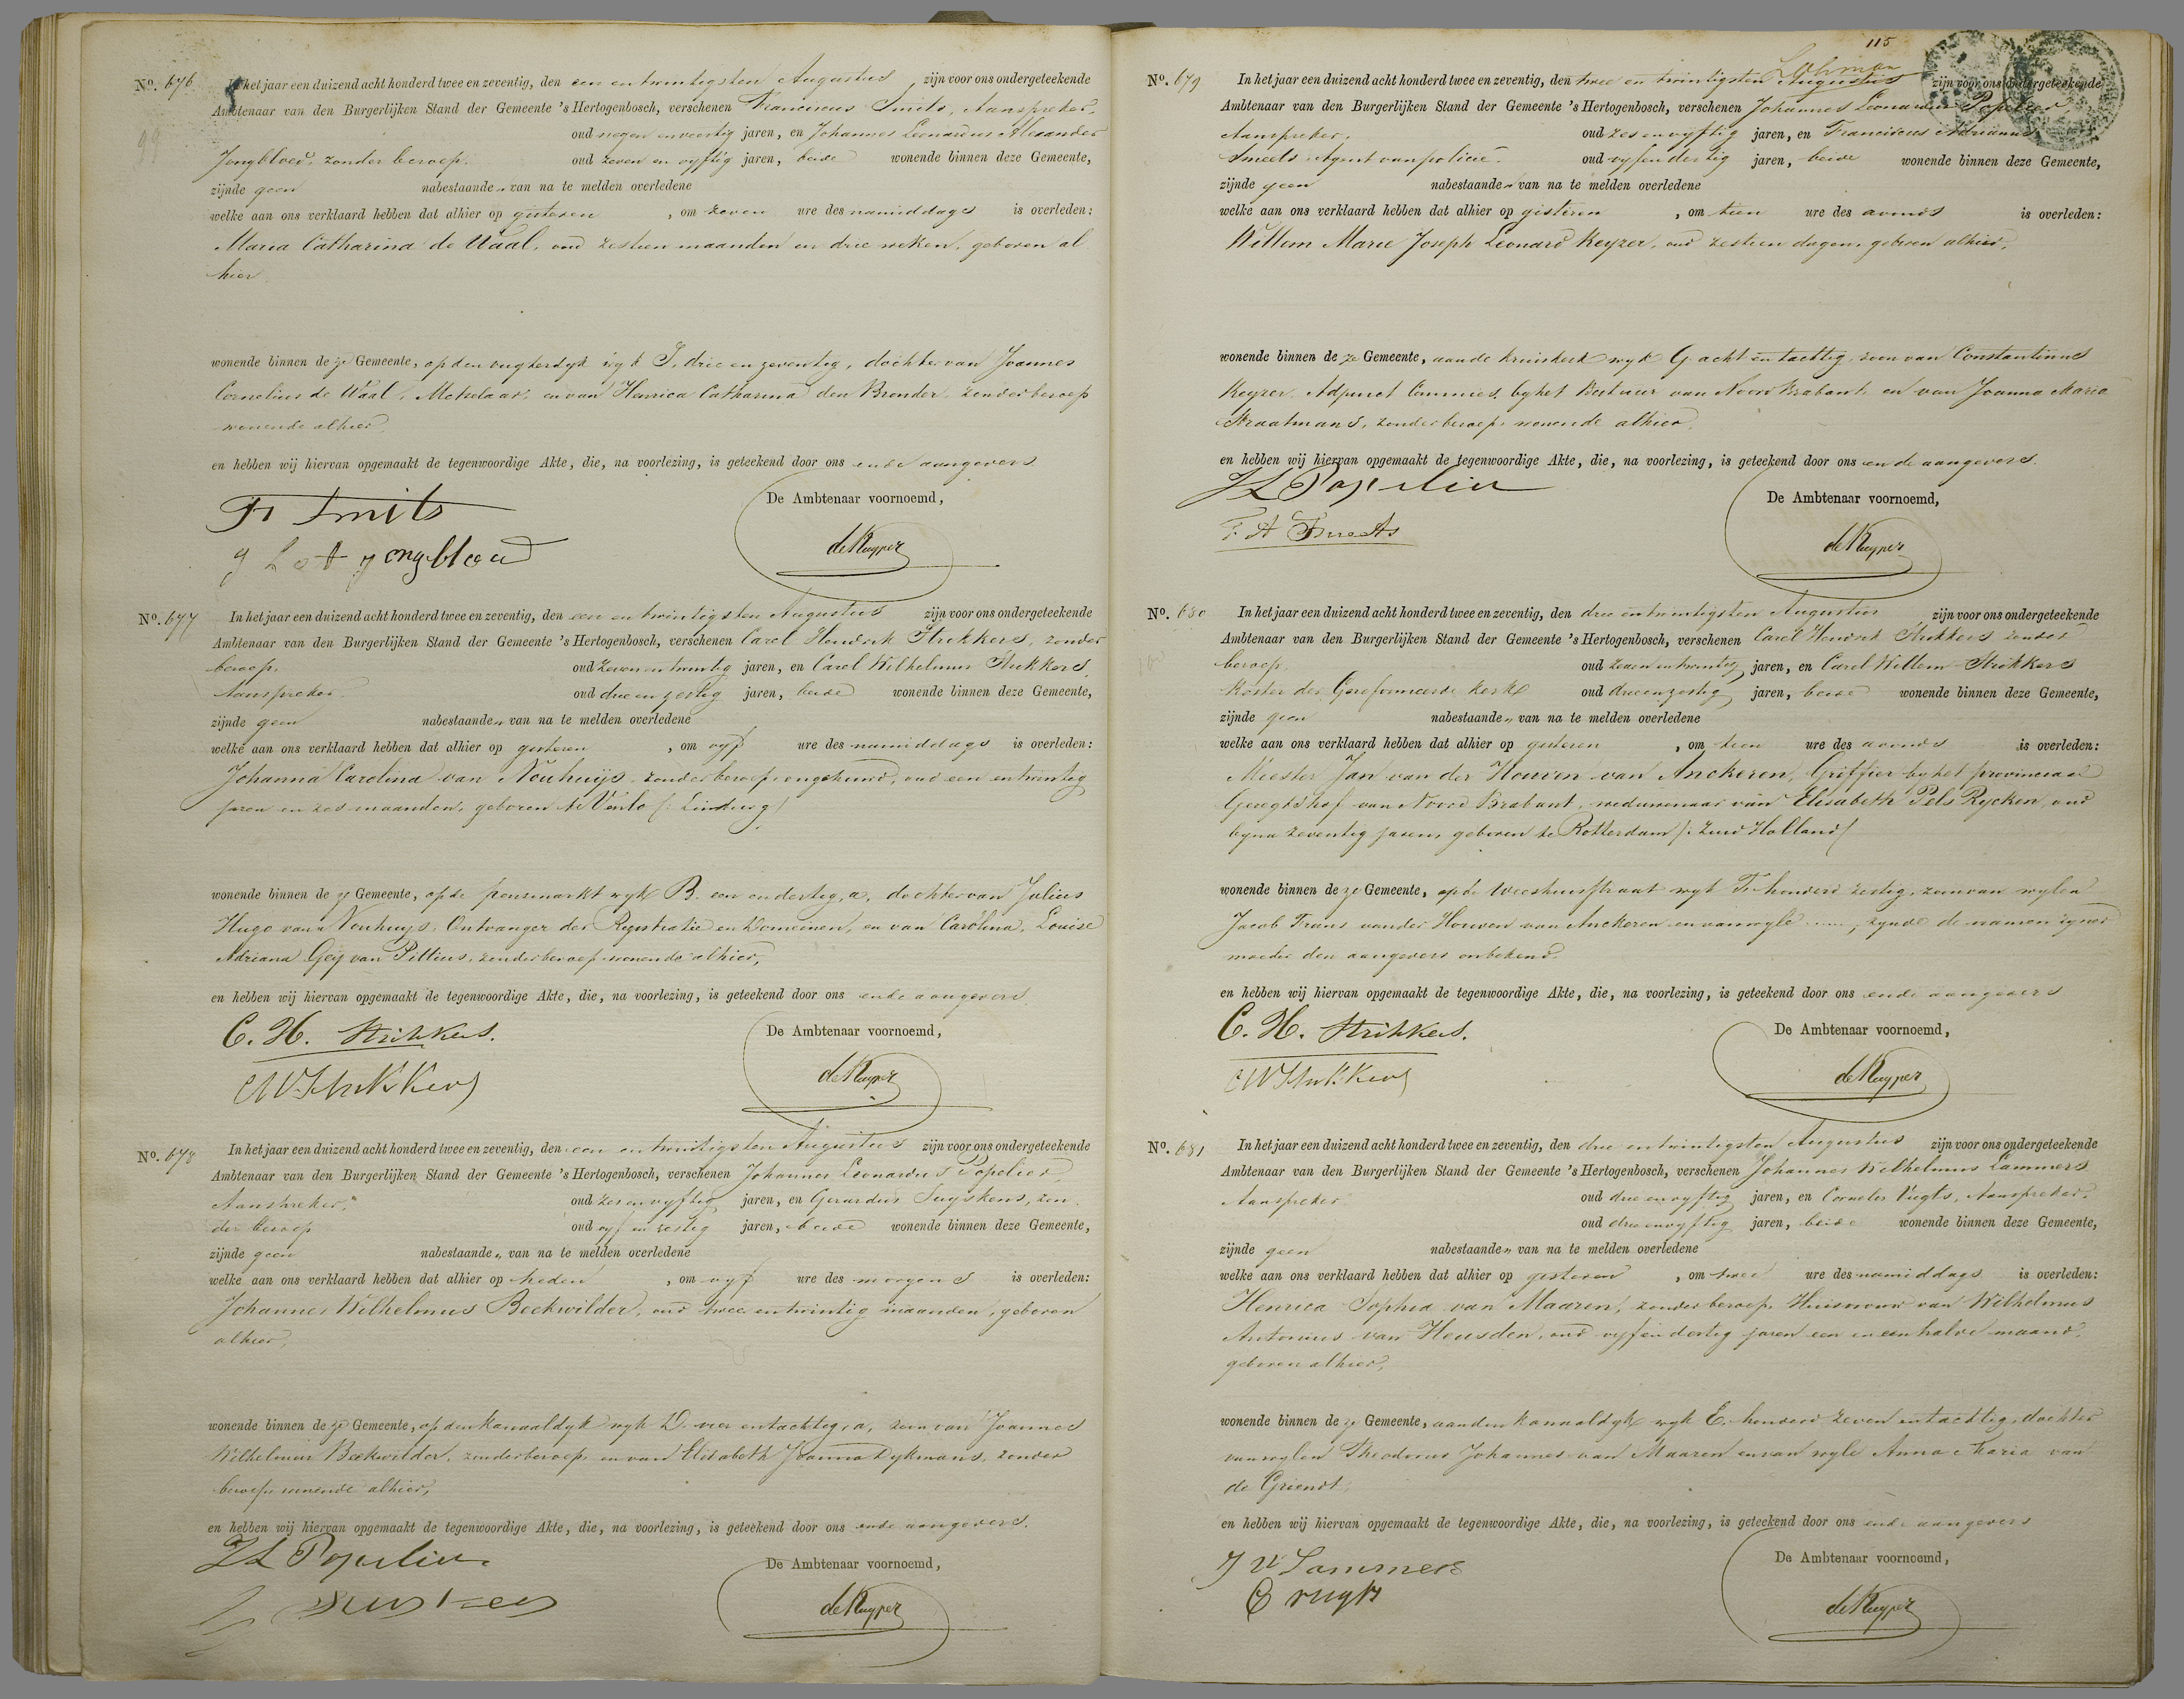 No. 676 In het jaar een duizend acht honderd twee en zeventig, den een en twintigsten Augustus zijn voor ons ondergeteekende
Ambtenaar van den Burgerlijken Stand der Gemeente 's Hertogenbosch, verschenen Franciscus Smits, Aanspreker,
oud negen en veertig jaren, en Johannes Leonardus Alexander
Jongbloed, zonder beroep, oud zeven en vyftig jaren, beide wonende binnen deze Gemeente,
zijnde geen nabestaande „ van na te melden overledene
welke aan ons verklaard hebben dat alhier op gisteren , om zeven ure des namiddags is overleden:
Maria Catharina de Waal, oud zestien maanden en drie weken, geboren al
hier
wonende binnen deze Gemeente, op den vughterdyk wyk I, drie en zeventig, dochter van Joannes
Cornelius de Waal, Metselaar, en van Henrica Catharina den Brender, zonder beroep
wonende alhier,
en hebben wij hiervan opgemaakt de tegenwoordige Akte, die, na voorlezing, is geteekend door ons en de aangevers
De Ambtenaar voornoemd,
Fr Smits
J L A Jongbloed
de Kuyper
No. 677 In het jaar een duizend acht honderd twee en zeventig, den een en twintigsten Augustus zijn voor ons ondergeteekende
Ambtenaar van den Burgerlijken Stand der Gemeente 's Hertogenbosch, verschenen Carel Hendrik Strikkers, zonder
beroep, oud zeven en twintig jaren, en Carel Wilhelmus Strikkers,
Aanspreker oud drie en zestig jaren, beide wonende binnen deze Gemeente,
zijnde geen nabestaande „ van na te melden overledene
welke aan ons verklaard hebben dat alhier op gisteren , om vyf ure des namiddags is overleden:
Johanna Carolina van Nouhuijs, zonder beroep, ongehuwd, oud een en twintig
jaren en zes maanden, geboren te Venlo (: Limburg)
wonende binnen deze Gemeente, op de pensmarkt wyk B. een en dertig, a, dochter van Julius
Hugo van Nouhuys, Ontvanger der Registratie en Domeinen, en van Carolina, Louise
Adriana Geij van Pittius, zonder beroep wonende alhier,
en hebben wij hiervan opgemaakt de tegenwoordige Akte, die, na voorlezing, is geteekend door ons en de aangevers
De Ambtenaar voornoemd,
C. H. Strikkers.
CW Strikkers
de Kuyper
No. 678 In het jaar een duizend acht honderd twee en zeventig, den een en twintigsten Augustus zijn voor ons ondergeteekende
Ambtenaar van den Burgerlijken Stand der Gemeente 's Hertogenbosch, verschenen Johannes Leonardus Popelier,
Aanspreker, oud zes en vyftig jaren, en Gerardus Suijskens, zon
der beroep oud vyf en zestig jaren, beide wonende binnen deze Gemeente,
zijnde geen nabestaande „ van na te melden overledene
welke aan ons verklaard hebben dat alhier op heden , om vyf ure des morgens is overleden:
Johannes Wilhelmus Beekwilder, oud twee en twintig maanden, geboren
alhier,
wonende binnen deze Gemeente, op den kanaaldyk wyk D. vier en tachtig, a, zoon van Joannes
Wilhelmus Beekwilder, zonder beroep, en van Elisabeth Joanna Dykmans, zonder
beroep wonende alhier,
en hebben wij hiervan opgemaakt de tegenwoordige Akte, die, na voorlezing, is geteekend door ons en de aangevers.
De Ambtenaar voornoemd,
JL Popelier
de Kuyper
115
No. 679 In het jaar een duizend acht honderd twee en zeventig, den twee en twintigsten Augustus zijn voor ons ondergeteekende
Ambtenaar van den Burgerlijken Stand der Gemeente 's Hertogenbosch, verschenen Johannes Leonardus Popelier
Aanspreker, oud zes en vyftig jaren, en Franciscus Adrianus
Smeets, Agent van policie oud vyf en dertig jaren, beide wonende binnen deze Gemeente,
zijnde geen nabestaande „ van na te melden overledene
welke aan ons verklaard hebben dat alhier op gisteren , om tien ure des avonds is overleden:
Willem Marie Joseph Leonard Keyzer, oud zestien dagen, geboren alhier,
wonende binnen deze Gemeente, aan de kruiskerk wyk G. acht en tachtig, zoon van Constantinus
Keyzer, Adjunct Commies, by het Bestuur van Noord Brabant, en van Joanna Maria
Straatmans, zonder beroep, wonende alhier,
en hebben wij hiervan opgemaakt de tegenwoordige Akte, die, na voorlezing, is geteekend door ons en de aangevers.
De Ambtenaar voornoemd,
JL Popelier
F. A Smeets
de Kuyper
No. 680 In het jaar een duizend acht honderd twee en zeventig, den drie en twintigsten Augustus zijn voor ons ondergeteekende
Ambtenaar van den Burgerlijken Stand der Gemeente 's Hertogenbosch, verschenen Carel Hendrik Strikkers zonder
beroep, oud zeven en twintig jaren, en Carel Willem Strikkers
Koster der Gereformeerde kerk oud drie en zestig jaren, beide wonende binnen deze Gemeente,
zijnde geen nabestaande „ van na te melden overledene
welke aan ons verklaard hebben dat alhier op gisteren , om tien ure des avonds is overleden:
Meester Jan van der Houven van Anckeren, Griffier by het provinciaal
Geregtshof van Noord Brabant, weduwenaar van Elisabeth Pels Rycken, oud
byna zeventig jaren, geboren te Rotterdam (: Zuid Holland)
wonende binnen deze Gemeente, op de Weeshuisstraat wyk F. honderd zestig, zoon van wylen
Jacob Frans van der Houven van Anckeren en van wyle ......, zynde de namen zyner
moeder den aangevers onbekend.
en hebben wij hiervan opgemaakt de tegenwoordige Akte, die, na voorlezing, is geteekend door ons en de aangevers
De Ambtenaar voornoemd,
C. H. Strikkers.
CW Strikkers
de Kuyper
No. 681 In het jaar een duizend acht honderd twee en zeventig, den drie en twintigsten Augustus zijn voor ons ondergeteekende
Ambtenaar van den Burgerlijken Stand der Gemeente 's Hertogenbosch, verschenen Johannes Wilhelmus Lammers
Aanspreker oud drie en vyftig jaren, en Cornelis Vugts, Aanspreker,
oud drie en vyftig jaren, beide wonende binnen deze Gemeente,
zijnde geen nabestaande „ van na te melden overledene
welke aan ons verklaard hebben dat alhier op gisteren , om twee ure des namiddags is overleden:
Henrica Sophia van Maaren, zonder beroep, Huisvrouw van Wilhelmus
Antonius van Heusden, oud vyf en dertig jaren een en een halve maand,
geboren alhier,
wonende binnen deze Gemeente, aan den kanaaldyk wyk E. honderd zeven en tachtig, dochter
van wylen Theodorus Johannes van Maaren en van wyle Anna Maria van
de Griendt,
en hebben wij hiervan opgemaakt de tegenwoordige Akte, die, na voorlezing, is geteekend door ons en de aangevers
De Ambtenaar voornoemd,
J W Lammers
C vugts
de Kuyper